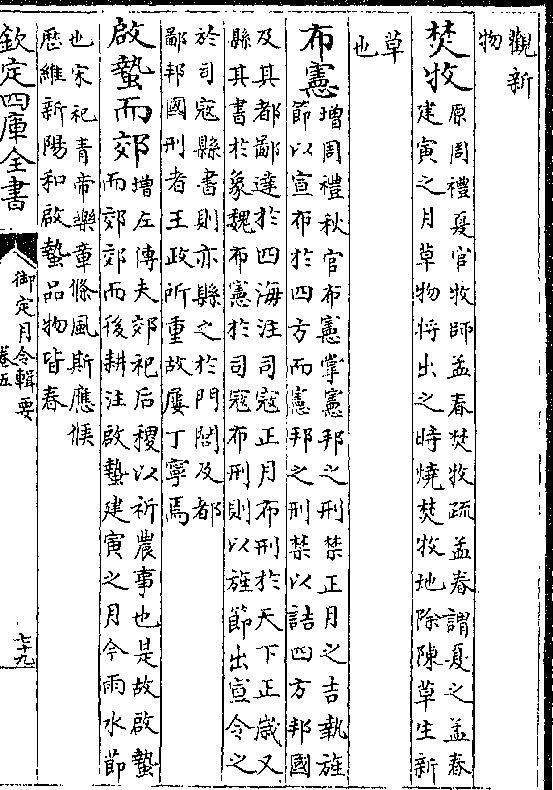 觀新
物
焚牧原周禮夏官牧師孟春焚牧疏孟春謂夏之孟春
建寅之月草物将出之時燒焚牧地除陳草生新
草
也
布憲増周禮秋官布憲掌憲邦之刑禁正月之吉執旌
節以宣布於四方而憲邦之刑禁以詰四方邦國
及其都鄙達於四海注司寇正月布刑於天下正歲又
縣其書於象魏布憲於司寇布刑則以旌節出宣令之
於司寇縣書則亦縣之於門閭及都
鄙邦國刑者王政所重故屢丁寧焉
啟蟄而郊增左傳夫郊祀后稷以祈農事也是故啟蟄
而郊郊而後耕注啟蟄建寅之月今雨水節
也宋祀青帝樂章條風斯應候
歴維新陽和啟蟄品物皆春
欽定四庫全書
御定月令輯要
卷五
七十九